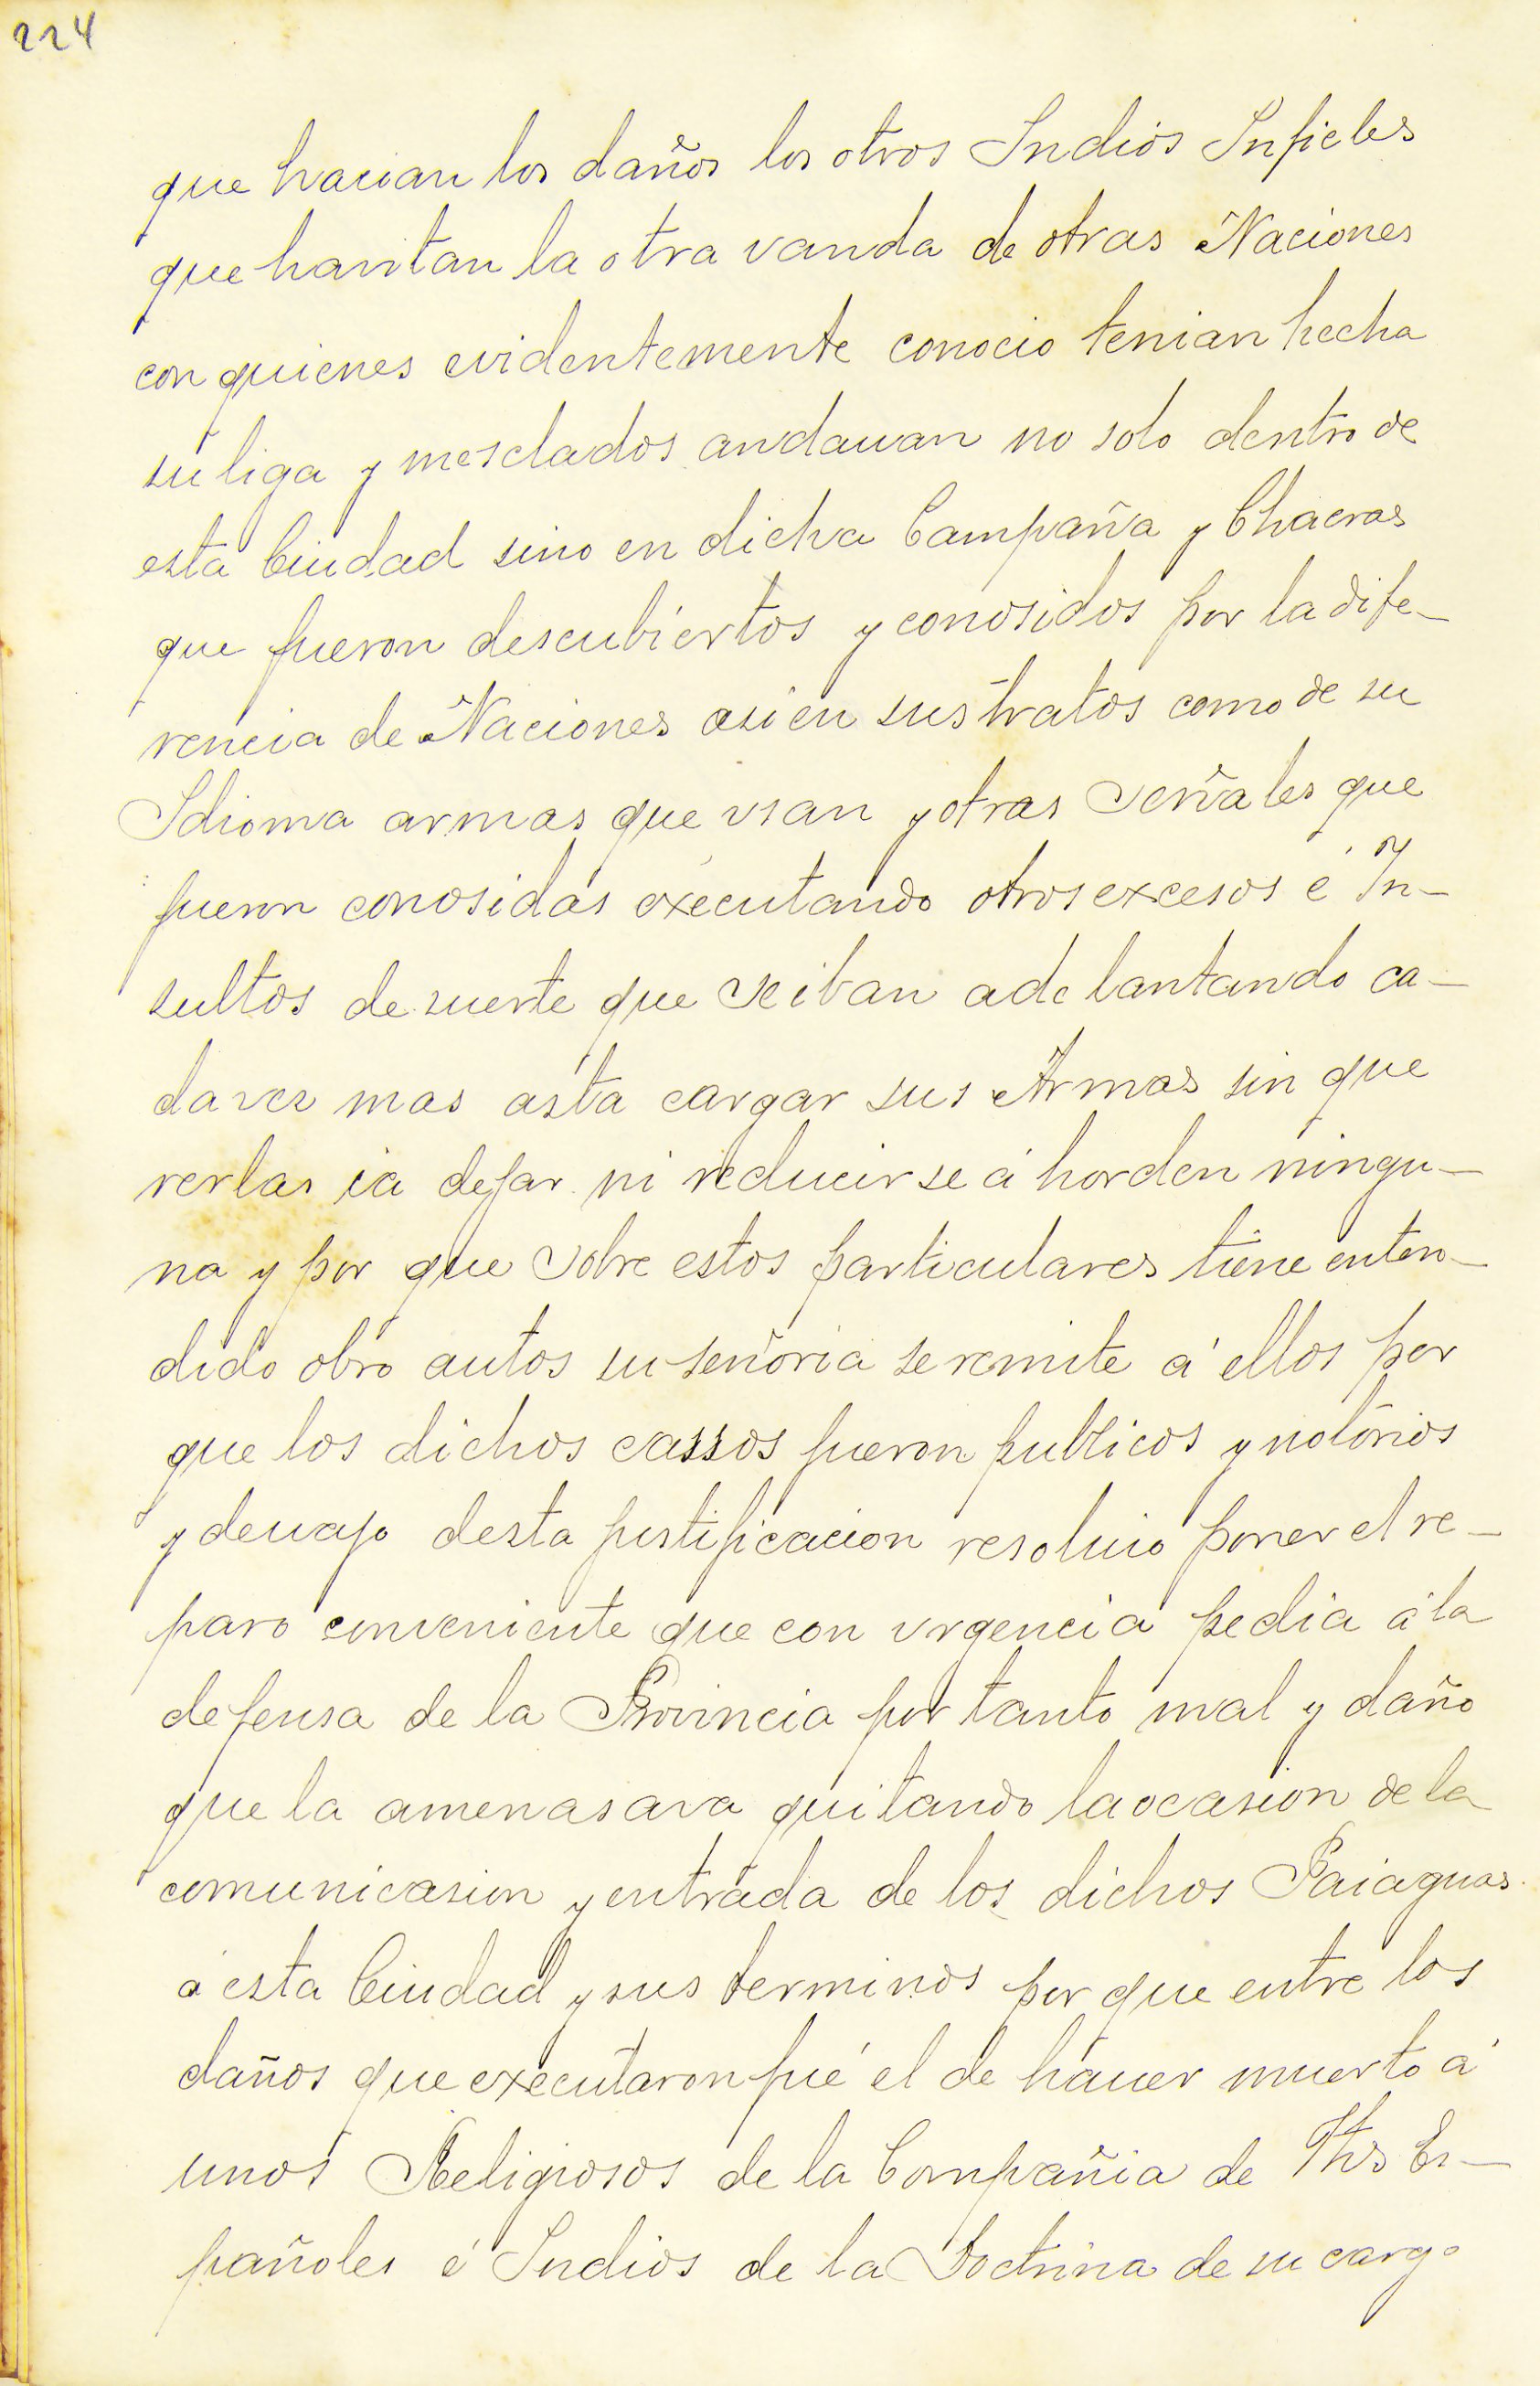 224
que hacian los daños los otros Indios Infieles
que havitan la otra vanda de otras Naciones
con quienes evidentemente conocio tenian hecha
su liga y mesclados andauan no solo dentro de
esta Ciudad sino en dicha Campaña y Chacras
que fueron descubiertos y conosidos por la dife-
rencia de Naciones asi en sus tratos como de su
Idioma armas que vsan y otras señales que
fueron conosidas executando otros excesos é In-
sultos de suerte que se iban adelantando ca-
da vez mas asta cargar sus Armas sin que
rerlas ia dejar ni reducirse á horden ningu-
na y por que sobre estos particulares tiene enten-
dido obro autos su señoria se remite á ellos por
que los dichos cassos fueron publicos y notorios
y deuajo desta justificacion resoluio poner el re-
paro conveniente que con vrgencia pedia á la
defensa de la Provincia por tanto mal y daño
que la amenasava quitando la ocasion de la
comunicasion y entrada de los dichos Paiaguas
á esta Ciudad y sus terminos por que entre los
daños que executaron fué el de hauer muerto á
unos Religiosos de la Compañia de Jhs Es-
pañoles é Indios de la Doctrina de su cargo